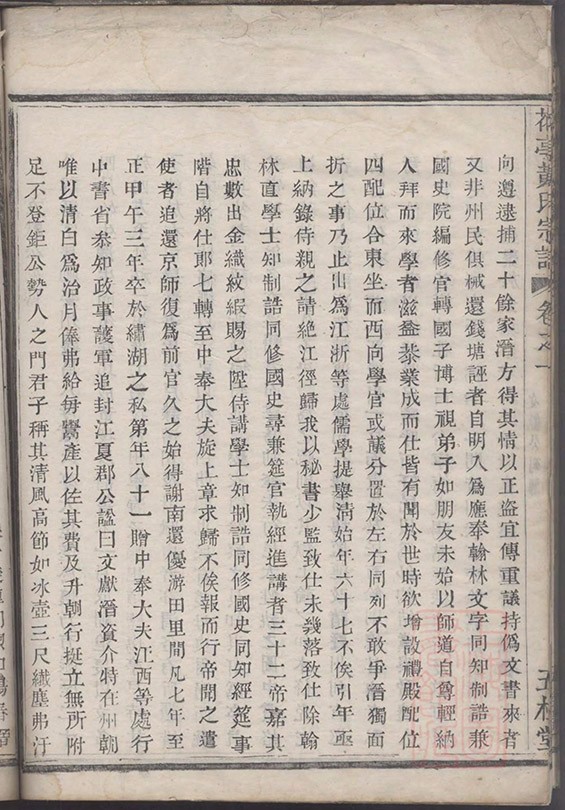 向遵逮捕二十餘家溍方得其情以正盜宜傳重議持僞文書來者
又非州民俱械還錢塘誣者自明入爲應奉翰林文字同知制誥兼
國史院編修官轉國子博士視弟子如朋友未始以師道自尊輕納
人拜而來學者滋益恭業成而仕皆有聞於世時欲增設禮殿配位
四配位合東坐而西向學官或議分置於左右同列不敢爭溍獨面
折之事乃止出爲江浙等處儒學提舉溍始年六十七不俟引年亟
上納錄侍親之請絶江徑歸我以秘書少監致仕未幾落致仕除翰
林直學士知制誥同修國史尋兼筵官執經進講者三十二帝嘉其
忠數出金織紋緞賜之陞侍講學士知制誥同修國史同知經筵事
階自將仕郎七轉至中奉大夫旋上章求歸不俟報而行帝聞之遣
使者追還京師復爲前官久之始得謝南還優游田里間凡七年至
正甲午三年卒於繡湖之私第年八十一贈中奉大夫江西等處行
中書省參知政事護軍追封江夏郡公諡曰文獻溍資介特在州郡
唯以清白爲治月俸弗給每鬻產以佐其費及升朝行挺立無所附
足不登鉅公勢人之門君子稱其清風高節如冰壺三尺纖塵弗汙